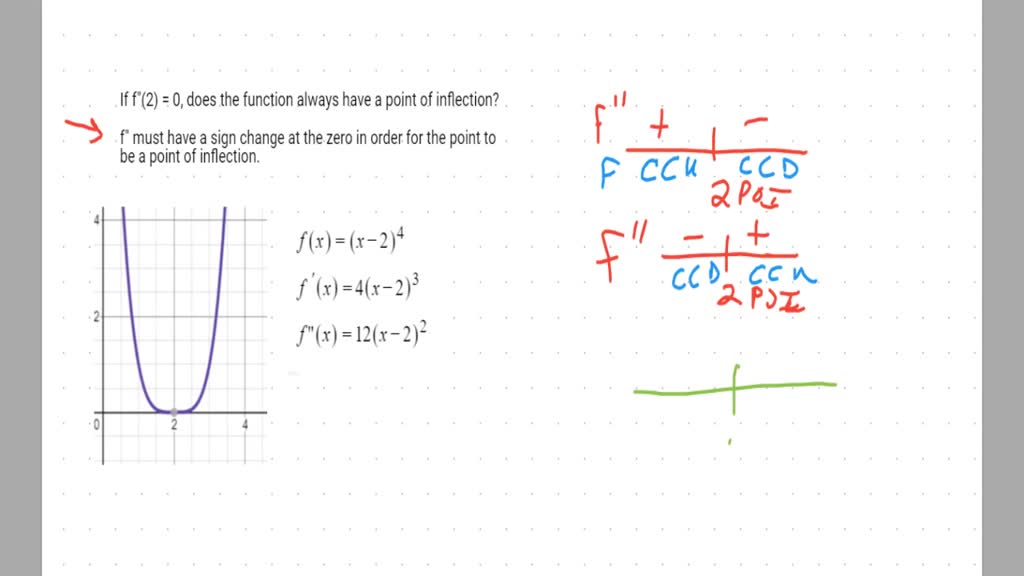 If f"(2) = 0, does the function always have a point of inflection?
f" must have a sign change at the zero in order for the point to
be a point of inflection.
f" + -
F CCU CCD
2 POI
f" - +
CCD CCU
2 POI
f(x)=(x-2)⁴
f'(x)=4(x-2)³
f"(x)=12(x-2)²
4
2
0 2 4